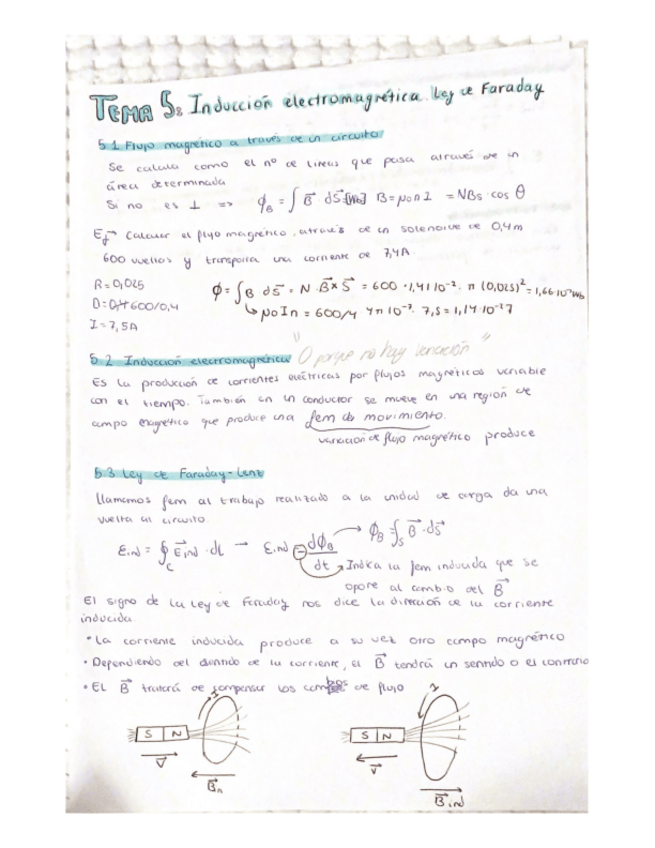 TEMA 5: Inducción electromagnética. Ley de Faraday
5.1 Flujo magnético a través de un circuito
Se calcula como el nº de líneas que pasa através de un
área determinada
Si no es ⊥ => ϕ_B = ∫ B⃗ dS⃗ [Wb] B=μ₀nI = NBs·cos θ
Ej→ Calcular el flujo magnético, através de un solenoide de 0,4m
600 vueltas y transporta una corriente de 7,4A
R=0,025
ϕ=∫B ds⃗ = N·B⃗×S⃗ = 600·1,41·10⁻²·π (0,025)² = 1,66·10⁻² Wb
D=0,4 600/0,4
↳ μ₀In = 600/4 4π10⁻⁷·7,5 = 1,14·10⁻²T
I=7,5A
5.2 Inducción electromagnética "O porque no hay variación"
Es la producción de corrientes eléctricas por flujos magnéticos variable
con el tiempo. También en un conductor se mueve en una región de
campo magnético que produce una fem de movimiento.
variación de flujo magnético produce
5.3 Ley de Faraday-Lenz
Llamamos fem al trabajo realizado a la unidad de carga da una
vuelta al circuito.
ε_ind = ∮_c E⃗_ind·dL → ε_ind = - dϕ_B/dt → ϕ_B = ∫_S B⃗·dS⃗
→ Indica la fem inducida que se
opone al cambio del B⃗
El signo de la Ley de Faraday nos dice la dirección de la corriente
inducida.
• La corriente inducida produce a su vez otro campo magnético
• Dependiendo del sentido de la corriente, el B⃗ tendrá un sentido o el contrario
• El B⃗ tratará de compensar los cambios de flujo
I I
S N S N
v⃗ v⃗
B⃗n B⃗ind